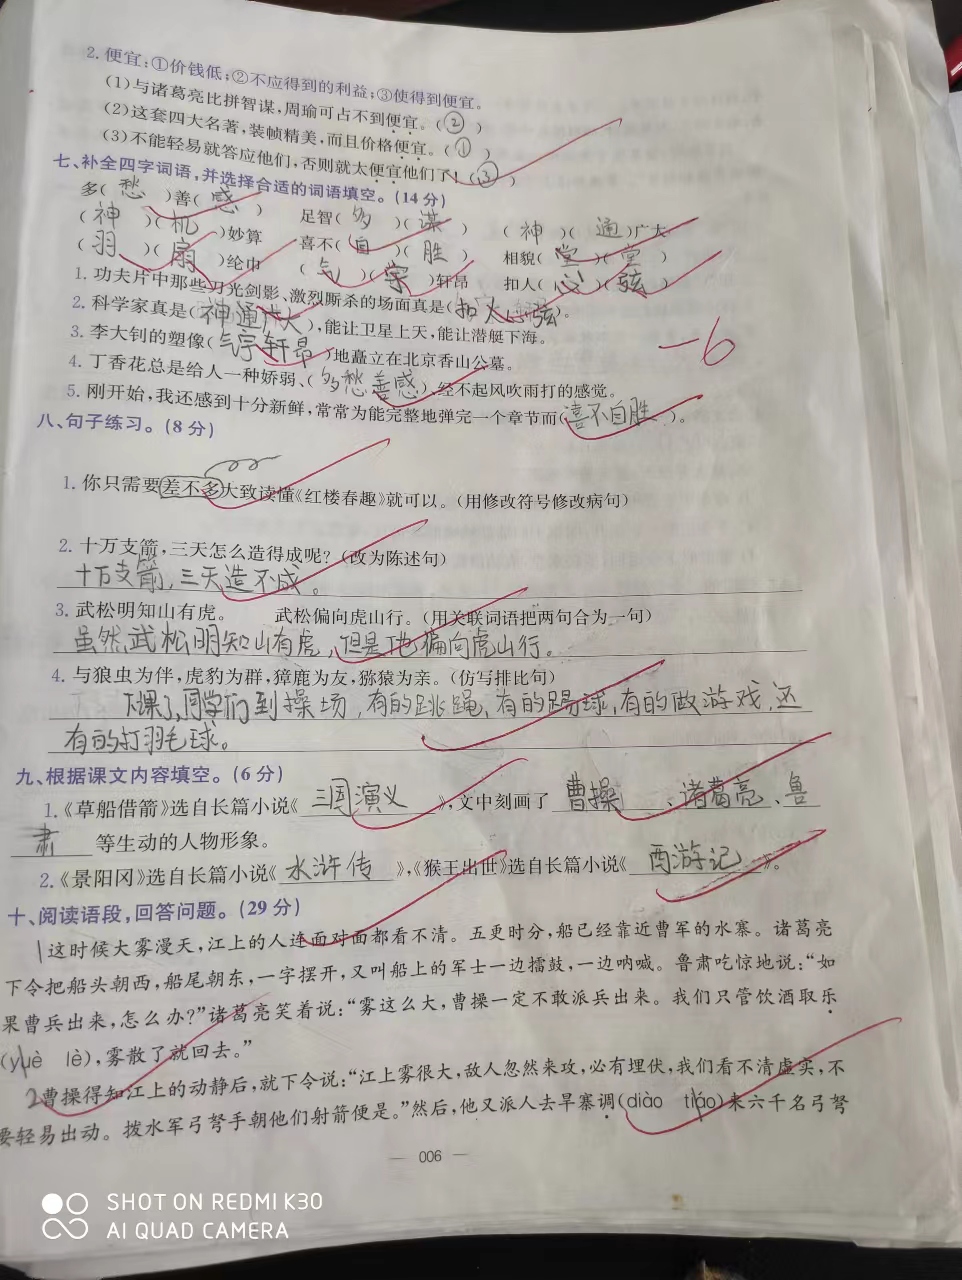 2. 便宜:①价钱低;②不应得到的利益;③使得到便宜。
(1)与诸葛亮比拼智谋,周瑜可占不到便宜。(②)
(2)这套四大名著,装帧精美,而且价格便宜。(①)
(3)不能轻易就答应他们,否则就太便宜他们了!(③)
七、补全四字词语,并选择合适的词语填空。(14分)
多(愁)善(感) 足智(多)(谋) (神)(通)广大
(神)(机)妙算 喜不(自)(胜) 相貌(堂)(堂)
(羽)(扇)纶巾 (气)(宇)轩昂 扣人(心)(弦)
1. 功夫片中那些刀光剑影、激烈厮杀的场面真是(扣人心弦)。
2. 科学家真是(神通广大),能让卫星上天,能让潜艇下海。
3. 李大钊的塑像(气宇轩昂)地矗立在北京香山公墓。
4. 丁香花总是给人一种娇弱、(多愁善感)、经不起风吹雨打的感觉。
5. 刚开始,我还感到十分新鲜,常常为能完整地弹完一个章节而(喜不自胜)。
-6
八、句子练习。(8分)
1. 你只需要差不多大致读懂《红楼春趣》就可以。(用修改符号修改病句)
2. 十万支箭,三天怎么造得成呢?(改为陈述句)
十万支箭,三天造不成。
3. 武松明知山有虎。 武松偏向虎山行。(用关联词语把两句合为一句)
虽然武松明知山有虎,但是他偏向虎山行。
4. 与狼虫为伴,虎豹为群,獐鹿为友,猕猿为亲。(仿写排比句)
下课了,同学们到操场,有的跳绳,有的踢球,有的做游戏,还
有的打羽毛球。
九、根据课文内容填空。(6分)
1.《草船借箭》选自长篇小说《三国演义》,文中刻画了曹操、诸葛亮、鲁
肃等生动的人物形象。
2.《景阳冈》选自长篇小说《水浒传》,《猴王出世》选自长篇小说《西游记》。
十、阅读语段,回答问题。(29分)
1这时候大雾漫天,江上的人连面对面都看不清。五更时分,船已经靠近曹军的水寨。诸葛亮
下令把船头朝西,船尾朝东,一字摆开,又叫船上的军士一边擂鼓,一边呐喊。鲁肃吃惊地说:“如
果曹兵出来,怎么办?”诸葛亮笑着说:“雾这么大,曹操一定不敢派兵出来。我们只管饮酒取乐
(yuè lè),雾散了就回去。”
2曹操得知江上的动静后,就下令说:“江上雾很大,敌人忽然来攻,必有埋伏,我们看不清虚实,不
要轻易出动。拨水军弓弩手朝他们射箭便是。”然后,他又派人去旱寨调(diào tiáo)来六千名弓弩
— 006 —
SHOT ON REDMI K30
AI QUAD CAMERA